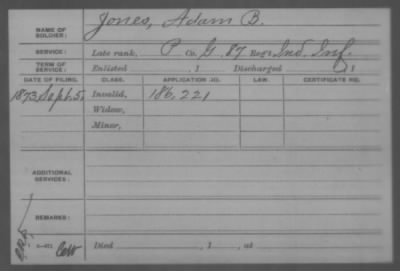 Jones, Adam B.
NAME OF SOLDIER:
SERVICE: Late rank, P Co. G. 87 Reg't Ind. Inf.
TERM OF SERVICE: Enlisted , 1 Discharged , 1
DATE OF FILING. CLASS. APPLICATION NO. LAW. CERTIFICATE NO.
1873 Sept. 5. Invalid, 186,221
Widow,
Minor,
ADDITIONAL SERVICES:
REMARKS:
Died , 1 , at